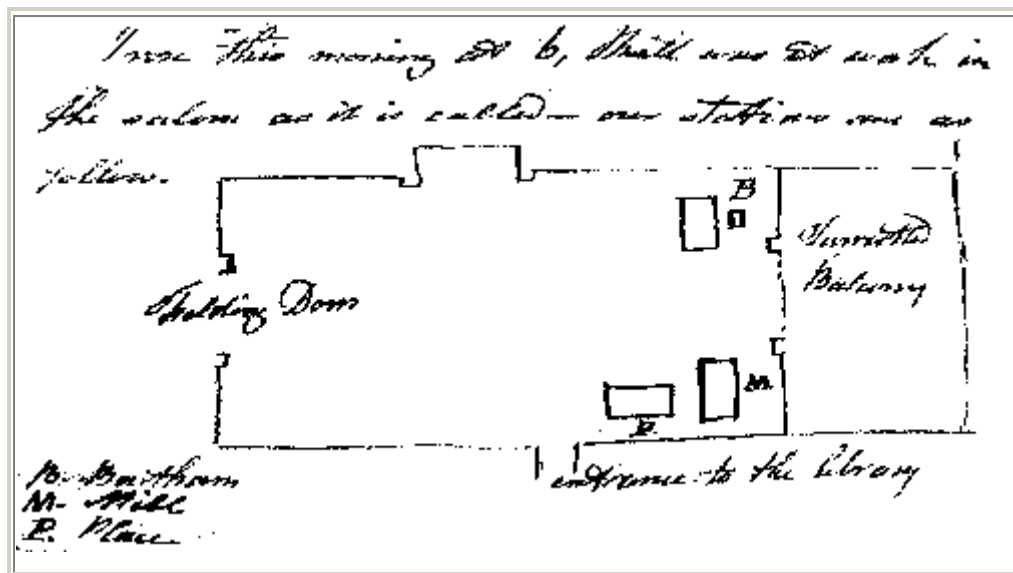 I rose this morning at 6, Mill was at work in
the saloon as it is called – our stations are as
follow.
B
Folding Doors
Balcony
M
P
entrance to the library
B. Bentham
M. Mill
P. Place